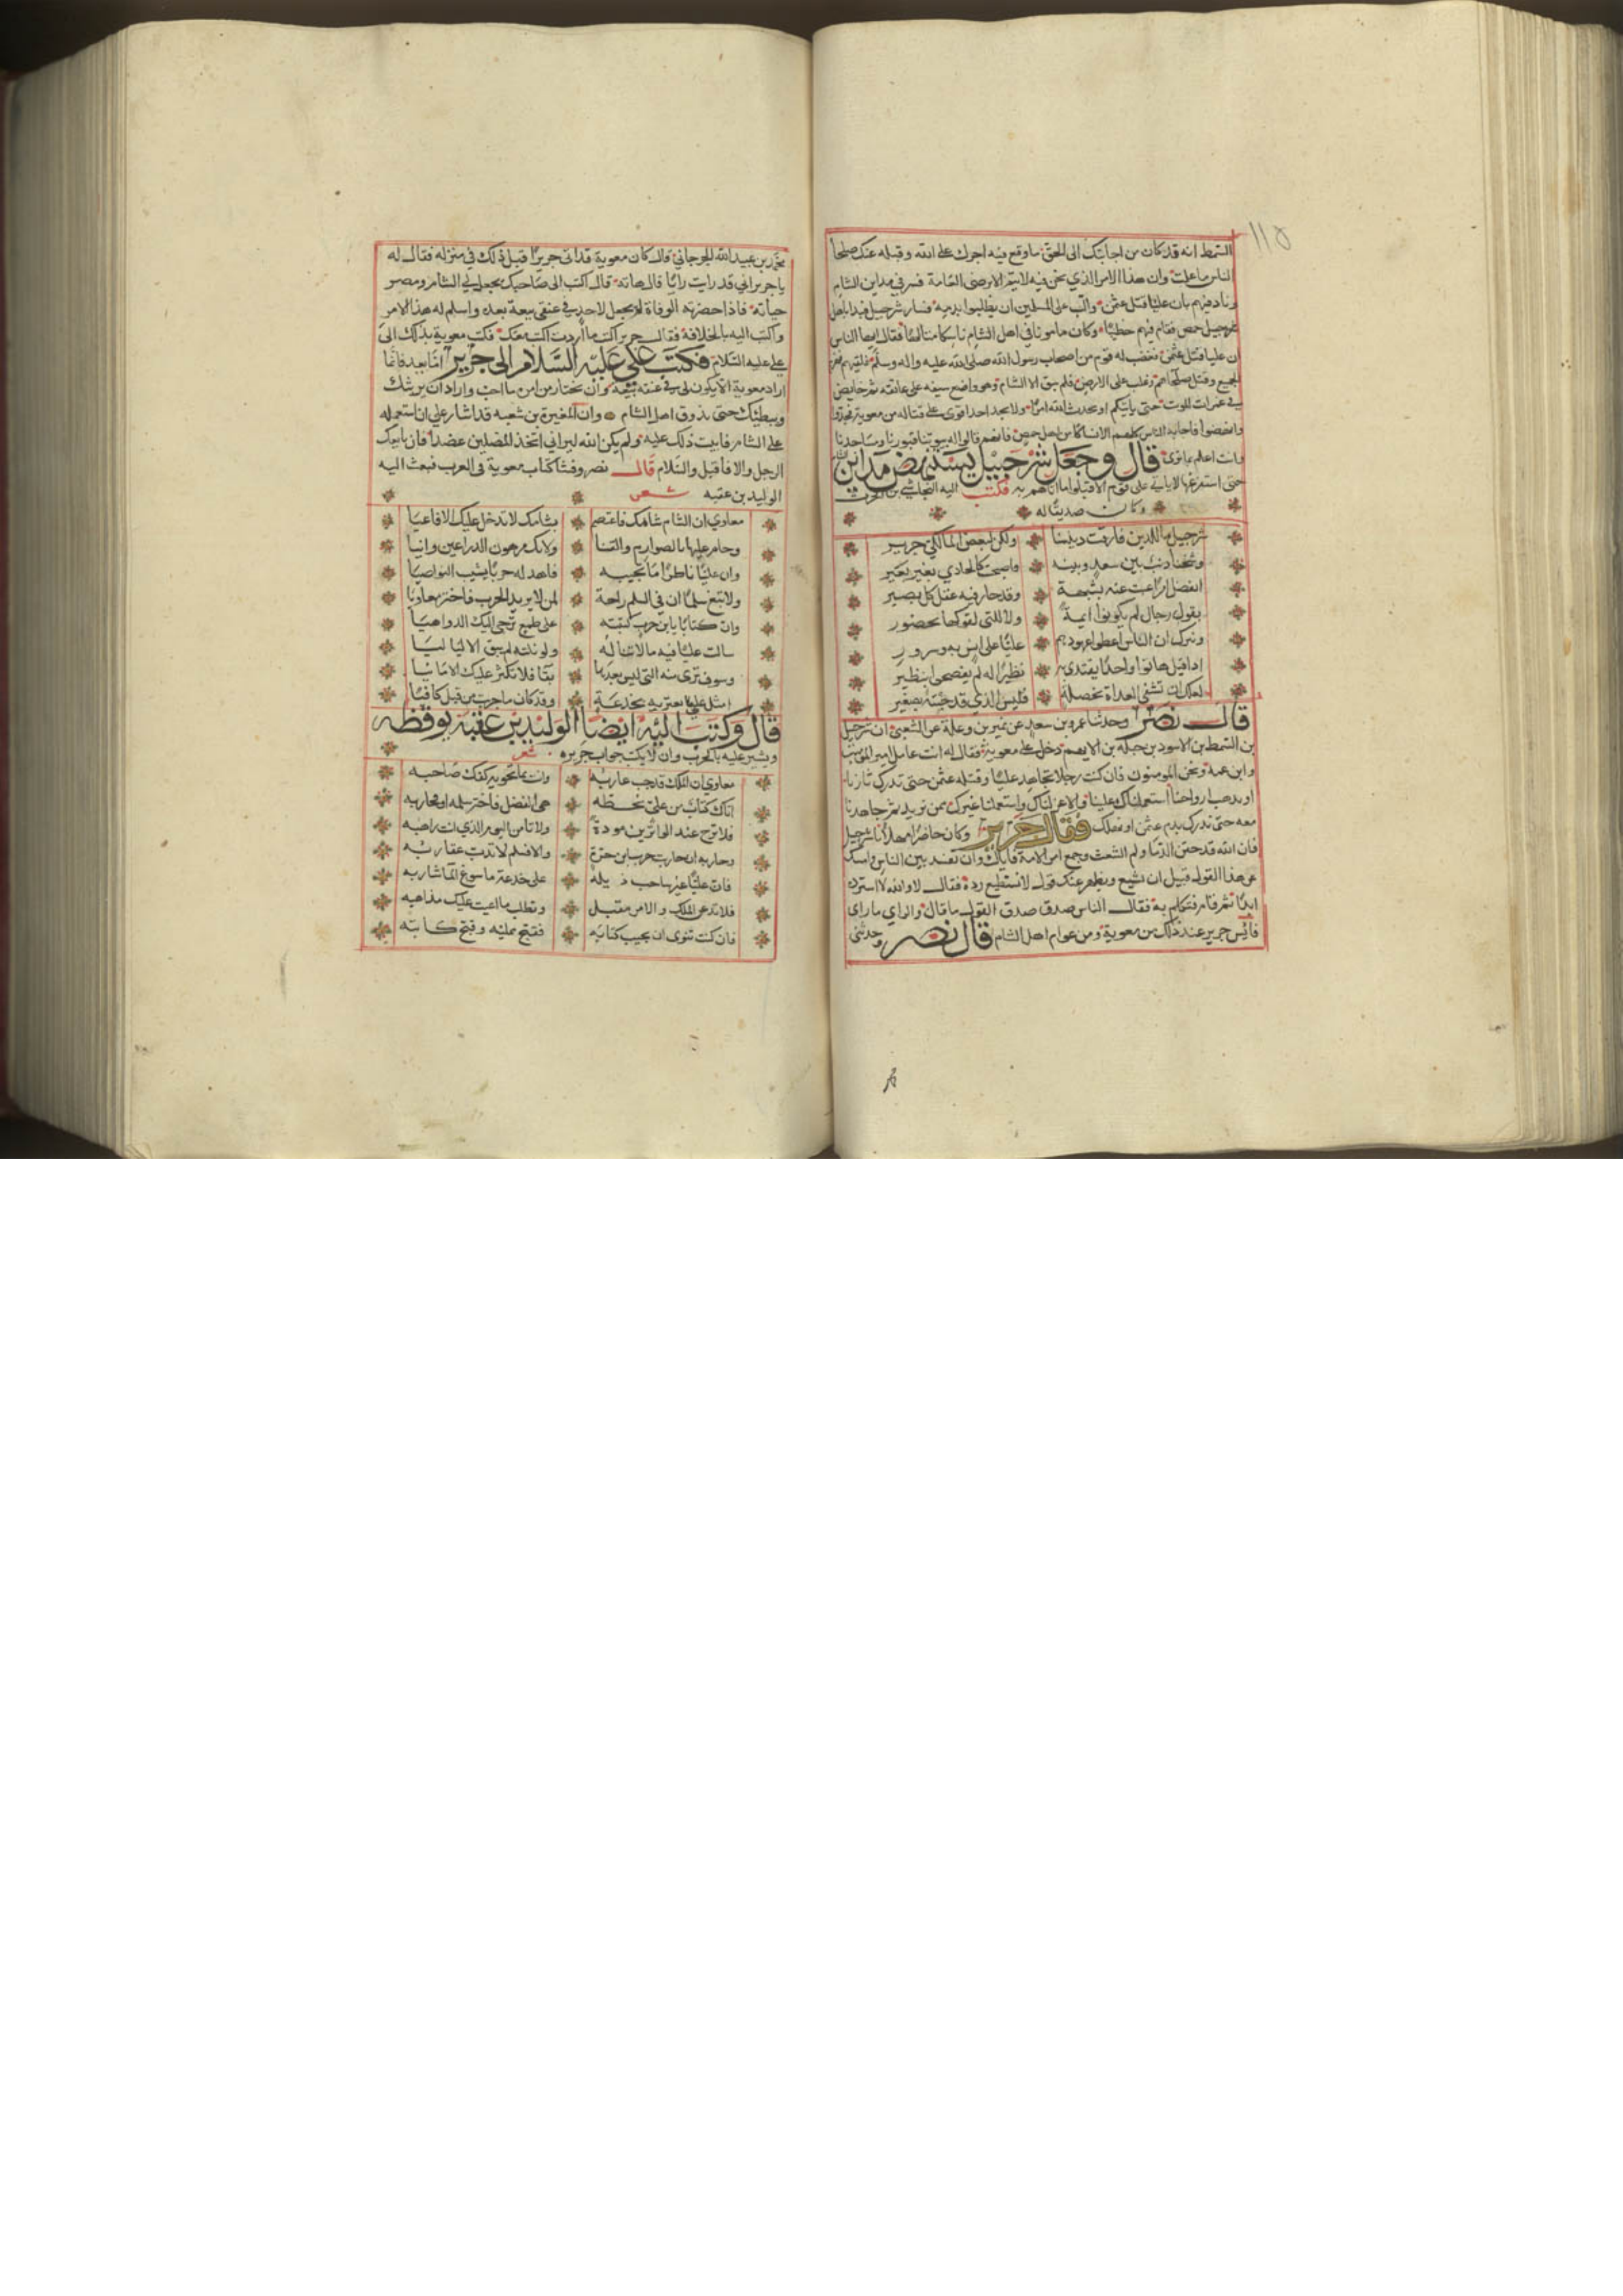 ١١٥
السمط انه قد كان من اجابتك الى الحق ما وقع فيه اجرك على الله وقبله عنك صلحا
الناس ما علمت وان هذا الامر الذي نحن فيه لا يتم الا برضى العامة فسر في مداين الشام
وناد فيهم بان عليا قتل عثمن والب على المسلمين ان يطلبوا بدمه فسار شرحبيل فبدا باهل
شرحبيل حمص فقام فيهم خطيبا وكان مامونا في اهل الشام ناسكا متالها فقال ايها الناس
ان عليا قتل عثمن فغضب له قوم من اصحاب رسول الله صلى الله عليه واله وسلم فلقيهم فهزم
الجميع وقتل صلحاهم وغلب على الارض فلم يبق الا الشام وهو واضع سيفه على عاتقه ثم خايض
في غمرات الموت حتى ياتيكم او يحدث الله امرا ولا يجد احدا اقوى على قتاله من معوية فجدوا
وانهضوا فاجابه الناس كلهم الا نساكا من اهل حمص فانهم قالوا له بيوتنا قبورنا ومساجدنا
وانت اعلم بما ترى قال وجعل شرحبيل يستنهض مداين الشام
حتى استفرغها لا ياتي على قوم الا قبلوا ما اتاهم به فكتب اليه النجاشي بن الحرث
وكان صديقا له
شرحبيل ما للدين فارقت ديننا ولكن لبغض المالكي جرير
وشحنا دبت بين سعد وبينه فاصبحت كالحادي بغير بعير
اتفصل امرا غبت عنه بشبهة وقد حار فيه عقل كل بصير
بقول رجال لم يكونوا ايمة ولا للتي لقوكها بحضور
وتترك ان الناس اعطوا عهودهم عليا على انس به وسرور
اذا قيل هاتوا واحدا يقتدى به نظيرا له لم يفصحوا بنظير
لعلك ان تشقى الغداة بخصلة فليس الذي قد جئته بصغير
قال نصر وحدثنا عمرو بن سعد عن نمير بن وعلة عن الشعبي ان شرحبيل
بن السمط بن الاسود بن جبلة بن الايهم دخل على معوية فقال له انت عامل امير المومنين
وابن عمه ونحن المومنون فان كنت رجلا تجاهد عليا وقتله عثمن حتى ندرك ثارنا
او تذهب ارواحنا استعملناك علينا والا عزلناك واستعملنا غيرك ممن نريد ثم جاهدنا
معه حتى ندرك بدم عثمن او نهلك فقال جرير وكان حاضرا مهلا يا شرحبيل
فان الله قد حقن الدما ولم الشعث وجمع امر الامة فاياك وان تفسد بين الناس وامسك
عن هذا القول قبل ان يشيع ويظهر عنك قول لا تستطيع رده فقال لا والله لا استره
ابدا ثم قام فتكلم به فقال الناس صدق صدق القول ما قال والراي ما راى
فايس جرير عند ذلك من معوية ومن عوام اهل الشام قال نصر وحدثني
محمد بن عبيد الله الجرجاني قال كان معوية قد اتى جريرا قبل ذلك في منزله فقال له
يا جرير اني قد رايت رايا قال هاته قال اكتب الى صاحبك يجعل لي الشام ومصر
حياته فاذا حضرته الوفاة لم يجعل لاحد في عنقي بيعة بعده واسلم له هذا الامر
واكتب اليه بالخلافة فقال جرير اكتب ما اردت اكتب معك فكتب معوية بذلك الى
علي عليه السلام فكتب علي عليه السلام الى جرير اما بعد فانما
اراد معوية الا يكون لي في عنقه بيعة وان يختار من امره ما احب واراد ان يريثك
ويبطئك حتى يذوق اهل الشام وان المغيرة بن شعبه قد اشار علي ان استعمله
على الشام فابيت ذلك عليه ولم يكن الله ليراني اتخذ المضلين عضدا فان بايعك
الرجل والا فاقبل والسلام قال نصر وفشا كتاب معوية في العرب فبعث اليه
الوليد بن عقبه شعر
معاوي ان الشام شامك فاعتصم بشامك لا تدخل عليك الافاعيا
وحام عليها بالصوارم والقنا ولا تك موهون الذراعين وانيا
وان عليا ناظرا ما تجيبه فاهد له حربا يشيب النواصيا
ولا تبغ سلما ان في السلم راحة لمن لا يريد الحرب فاختر معاويا
وان كتابا يا بن حرب كتبته على طمع تزجي اليك الدواهيا
سالت عليا فيه ما لا تناله ولو نلته لم يبق الا لياليا
وسوف ترى منه التي ليس بعدها بقا فلا تكثر عليك الامانيا
امثل علي تعتريه بخدعة وقد كان ما جربت من قبل كافيا
قال وكتب اليه ايضا الوليد بن عقبة يوقظه
ويشير عليه بالحرب وان لا يكتب جواب جريره شعر
معاوي ان الملك قد جب غاربه وانت بما تحويه كفك صاحبه
اتاك كتاب من علي بخطه هي الفصل فاختر سلمه او تحاربه
فلا ترج عند الواترين مودة ولا تامن اليوم الذي انت راهبه
وحاربه ان حاربت حرب ابن حرة والا فسلم لا تدب عقاربه
فان عليا غير ساحب ذيله على خدعة ما سوغ الما شاربه
فلا تدعن الملك والامر مقبل وتطلب ما اعيت عليك مذاهبه
فان كنت تنوى ان يجيب كتابه فقبح ممليه وقبح كاتبه